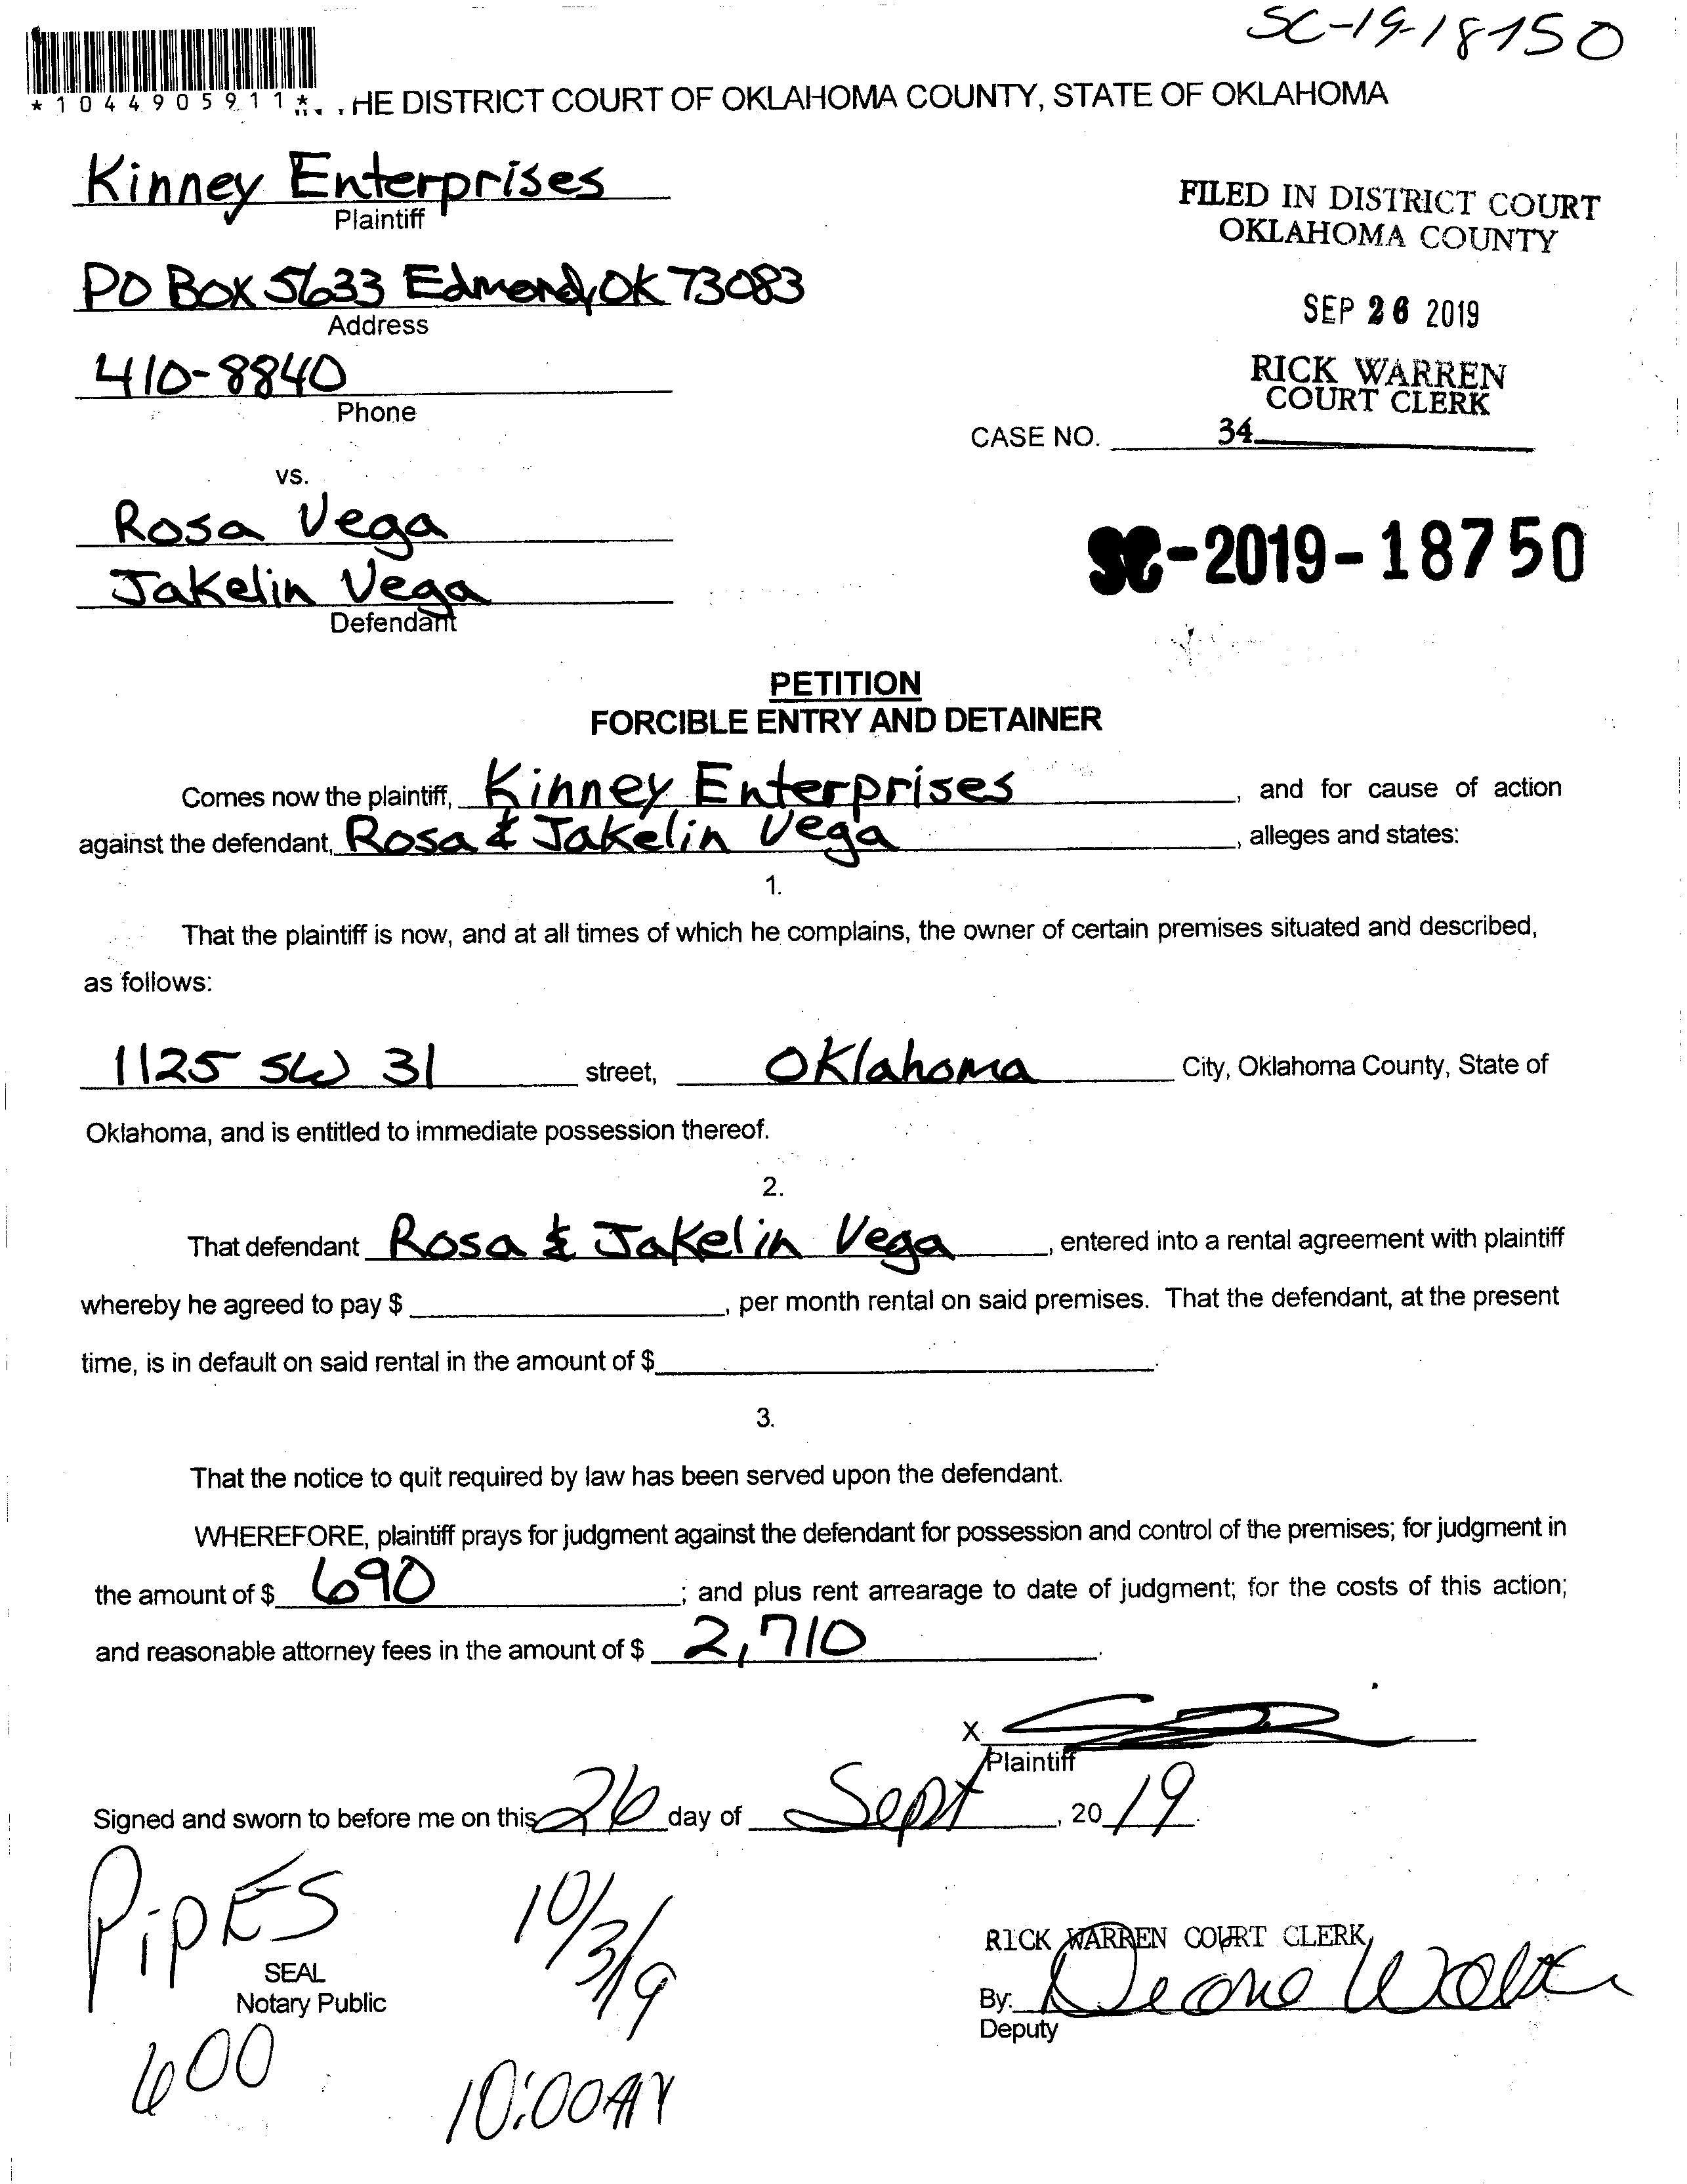 SC-19-18750
*1044905911*
HE DISTRICT COURT OF OKLAHOMA COUNTY, STATE OF OKLAHOMA
Kinney Enterprises
Plaintiff
FILED IN DISTRICT COURT
OKLAHOMA COUNTY
PO Box 5633 Edmond, OK 73083
Address
SEP 26 2019
410-8840
Phone
RICK WARREN
COURT CLERK
CASE NO. 34
vs.
Rosa Vega
Jakelin Vega
Defendant
SC-2019-18750
PETITION
FORCIBLE ENTRY AND DETAINER
Comes now the plaintiff, Kinney Enterprises, and for cause of action
against the defendant, Rosa & Jakelin Vega, alleges and states:
1.
That the plaintiff is now, and at all times of which he complains, the owner of certain premises situated and described,
as follows:
1125 SW 31 street, Oklahoma City, Oklahoma County, State of
Oklahoma, and is entitled to immediate possession thereof.
2.
That defendant Rosa & Jakelin Vega, entered into a rental agreement with plaintiff
whereby he agreed to pay $ , per month rental on said premises. That the defendant, at the present
time, is in default on said rental in the amount of $ .
3.
That the notice to quit required by law has been served upon the defendant.
WHEREFORE, plaintiff prays for judgment against the defendant for possession and control of the premises; for judgment in
the amount of $ 690 ; and plus rent arrearage to date of judgment; for the costs of this action;
and reasonable attorney fees in the amount of $ 2,710.
X
Plaintiff
Signed and sworn to before me on this 26 day of Sept, 20 19.
PipES
10/3/19
SEAL
Notary Public
RICK WARREN COURT CLERK
By:
Deputy
600
10:00AM